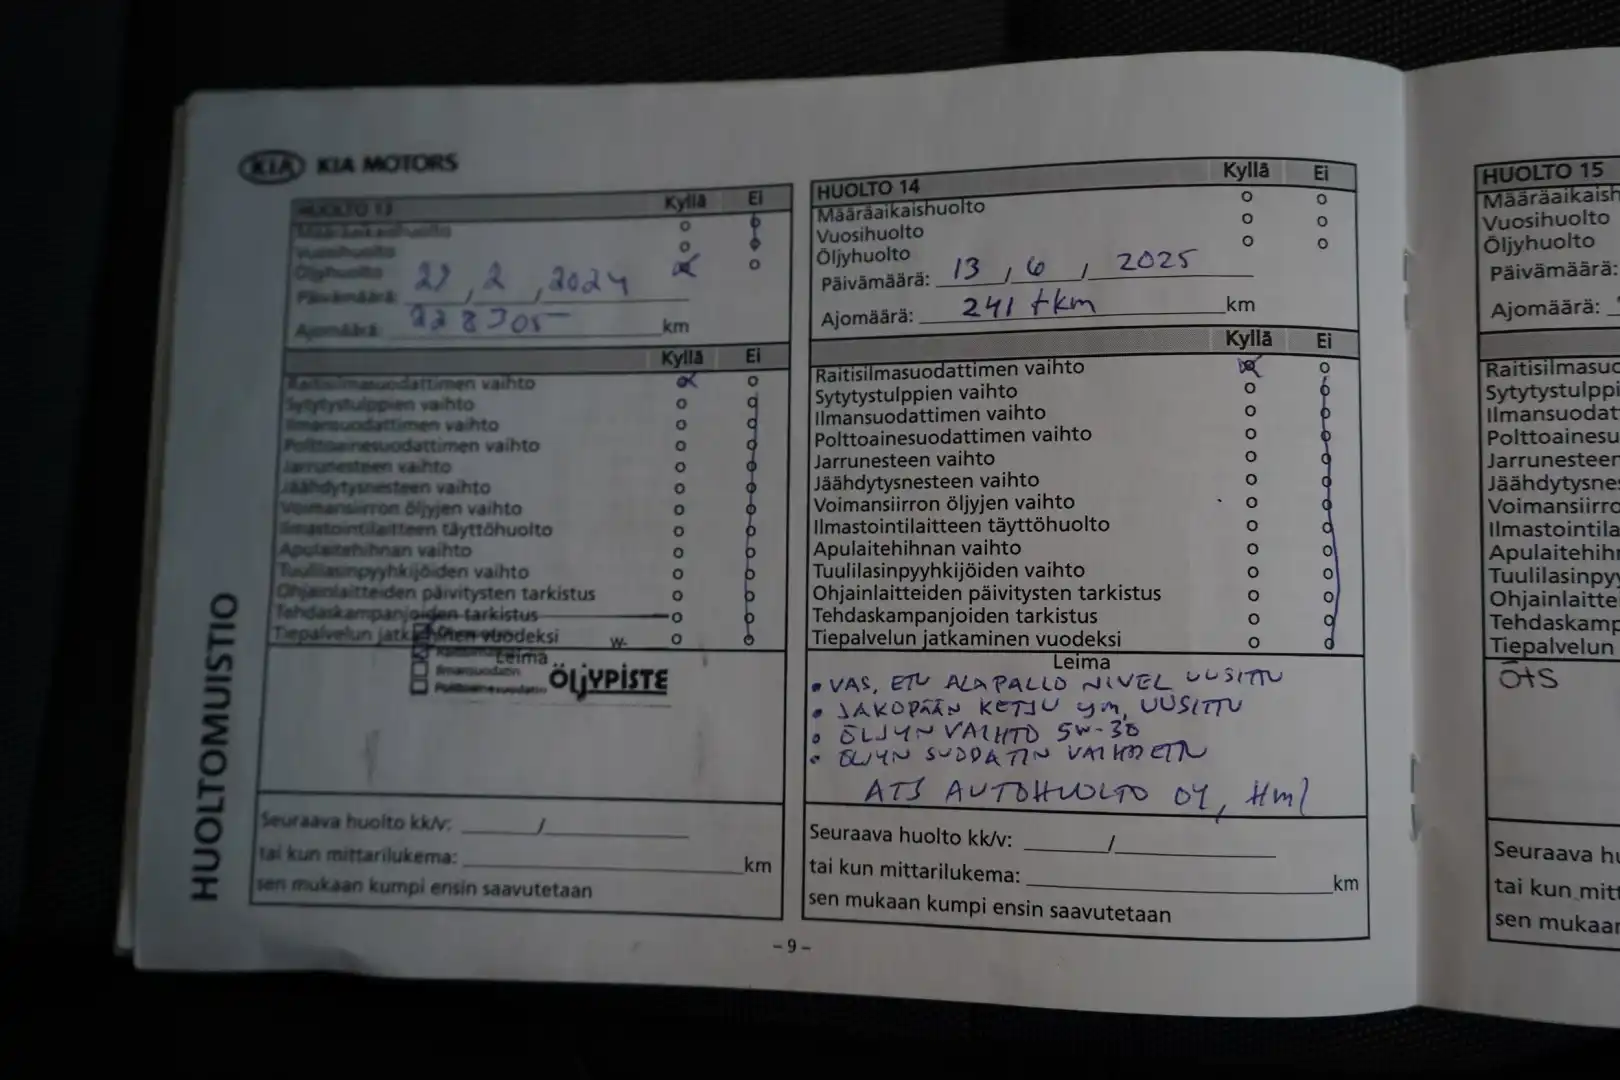 KIA KIA MOTORS
HUOLTOMUISTIO
HUOLTO 13 Kyllä Ei
Määräaikaishuolto
Vuosihuolto
Öljyhuolto
Päivämäärä: , 2 , 2024
Ajomäärä: 228305 km
Kyllä Ei
Raitisilmasuodattimen vaihto
Sytytystulppien vaihto
Ilmansuodattimen vaihto
Polttoainesuodattimen vaihto
Jarrunesteen vaihto
Jäähdytysnesteen vaihto
Voimansiirron öljyjen vaihto
Ilmastointilaitteen täyttöhuolto
Apulaitehihnan vaihto
Tuulilasinpyyhkijöiden vaihto
Ohjainlaitteiden päivitysten tarkistus
Tehdaskampanjoiden tarkistus
Tiepalvelun jatkaminen vuodeksi
W-
Leima
Ilmansuodatin
Polttoainesuodatin
ÖLJYPISTE
Seuraava huolto kk/v: /
tai kun mittarilukema: km
sen mukaan kumpi ensin saavutetaan
HUOLTO 14 Kyllä Ei
Määräaikaishuolto
Vuosihuolto
Öljyhuolto
Päivämäärä: 13 , 6 , 2025
Ajomäärä: 241 tkm km
Kyllä Ei
Raitisilmasuodattimen vaihto
Sytytystulppien vaihto
Ilmansuodattimen vaihto
Polttoainesuodattimen vaihto
Jarrunesteen vaihto
Jäähdytysnesteen vaihto
Voimansiirron öljyjen vaihto
Ilmastointilaitteen täyttöhuolto
Apulaitehihnan vaihto
Tuulilasinpyyhkijöiden vaihto
Ohjainlaitteiden päivitysten tarkistus
Tehdaskampanjoiden tarkistus
Tiepalvelun jatkaminen vuodeksi
Leima
• VAS, ETU ALAPALLO NIVEL UUSITTU
• JAKOPÄÄN KETJU ym, UUSITTU
• ÖLJYN VAIHTO 5W-30
• ÖLJYN SUODATIN VAIHDETTU
ATS AUTOHUOLTO OY, Hml
Seuraava huolto kk/v: /
tai kun mittarilukema: km
sen mukaan kumpi ensin saavutetaan
- 9 -
HUOLTO 15
Määräaikaish
Vuosihuolto
Öljyhuolto
Päivämäärä:
Ajomäärä:
Raitisilmasuo
Sytytystulppi
Ilmansuodat
Polttoainesu
Jarrunesteen
Jäähdytysnes
Voimansiirro
Ilmastointila
Apulaitehihn
Tuulilasinpyy
Ohjainlaitte
Tehdaskamp
Tiepalvelun
ÖtS
Seuraava hu
tai kun mitt
sen mukaan